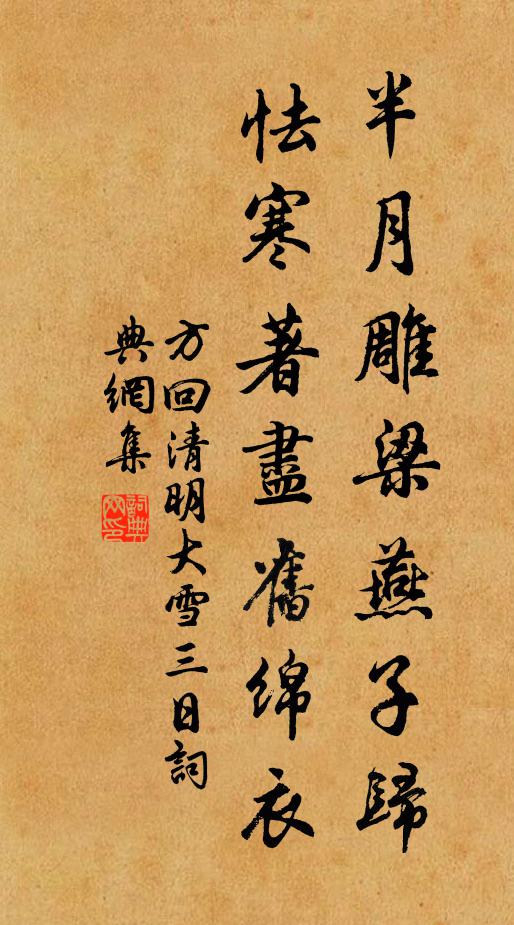 半月雕梁燕子歸
怯寒著盡舊綿衣
方回清明大雪三日詞
典網集
詞典網印